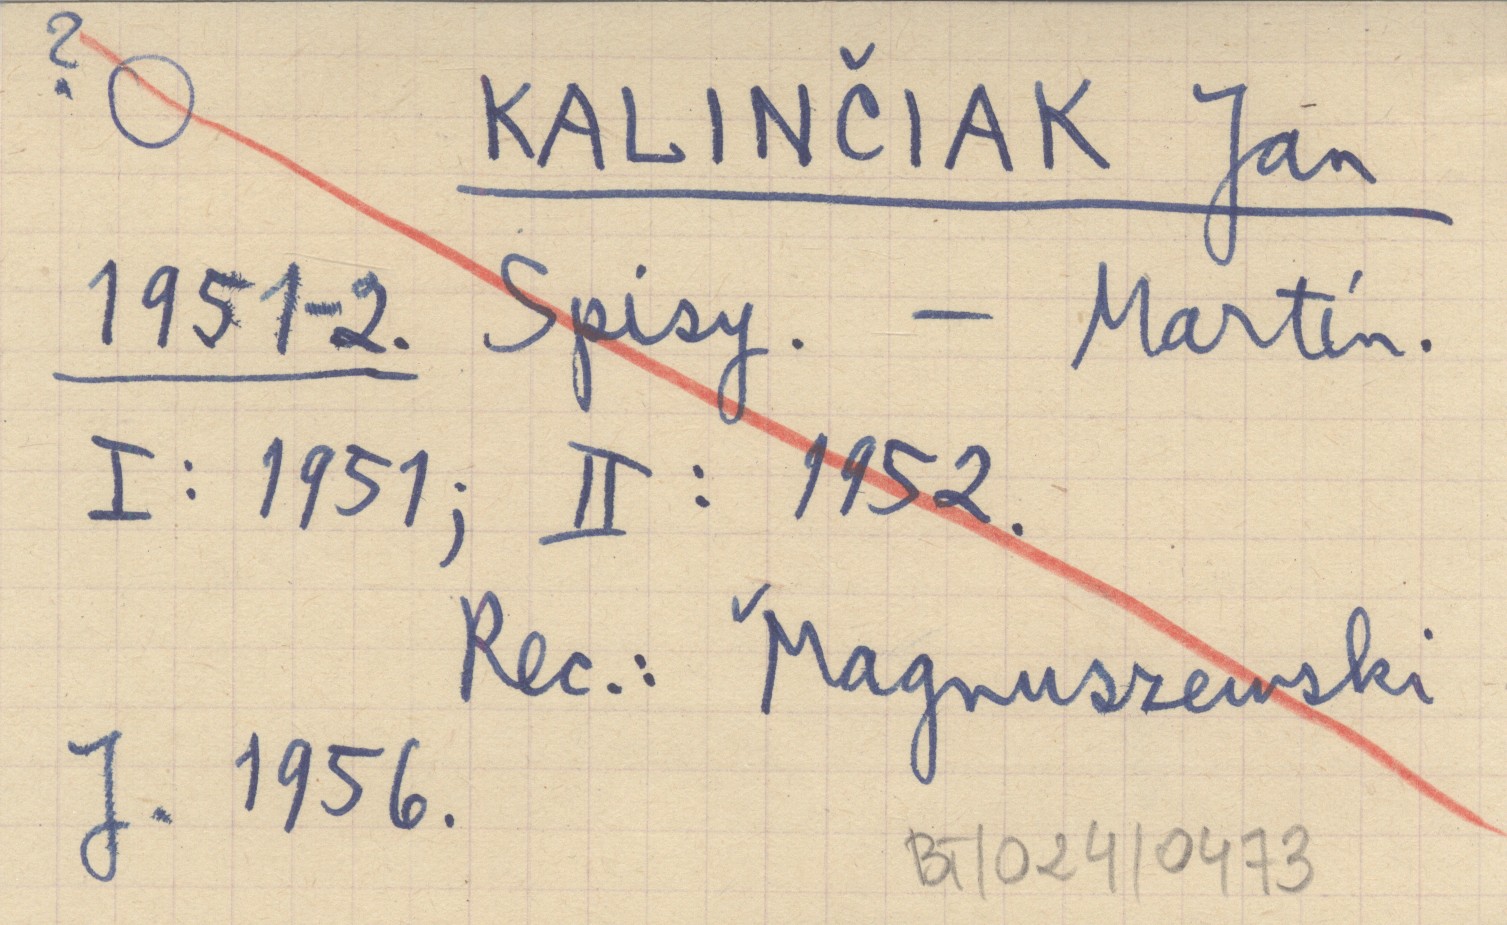 ?
KALINČIAK Ján
1951-2. Spisy. — Martin.
I: 1951; II: 1952.
Rec.: Magnuszewski
J. 1956.
BT/024/0473